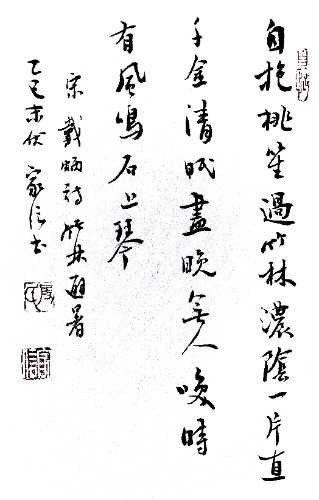 自抱桃笙過竹林濃陰一片直
千金清眠盡晚無人喚時
有風鳴石上琴
宋戴昺詩竹林避暑
乙巳末伏家信书